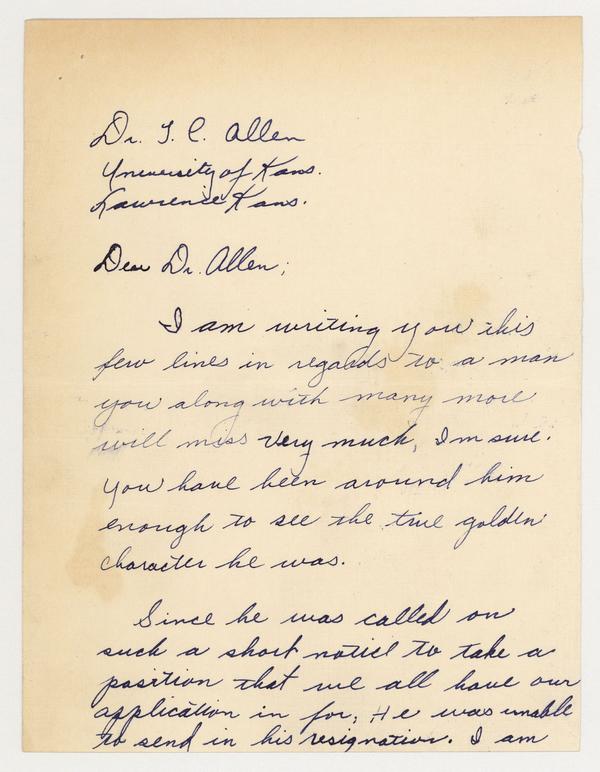 Dr. F. C. Allen
University of Kans.
Lawrence Kans.
Dear Dr. Allen;
I am writing you this
few lines in regards to a man
you along with many more
will miss very much, I'm sure.
You have been around him
enough to see the true golden
character he was.
Since he was called on
such a short notice to take a
position that we all have our
application in for, He was unable
to send in his resignation. I am